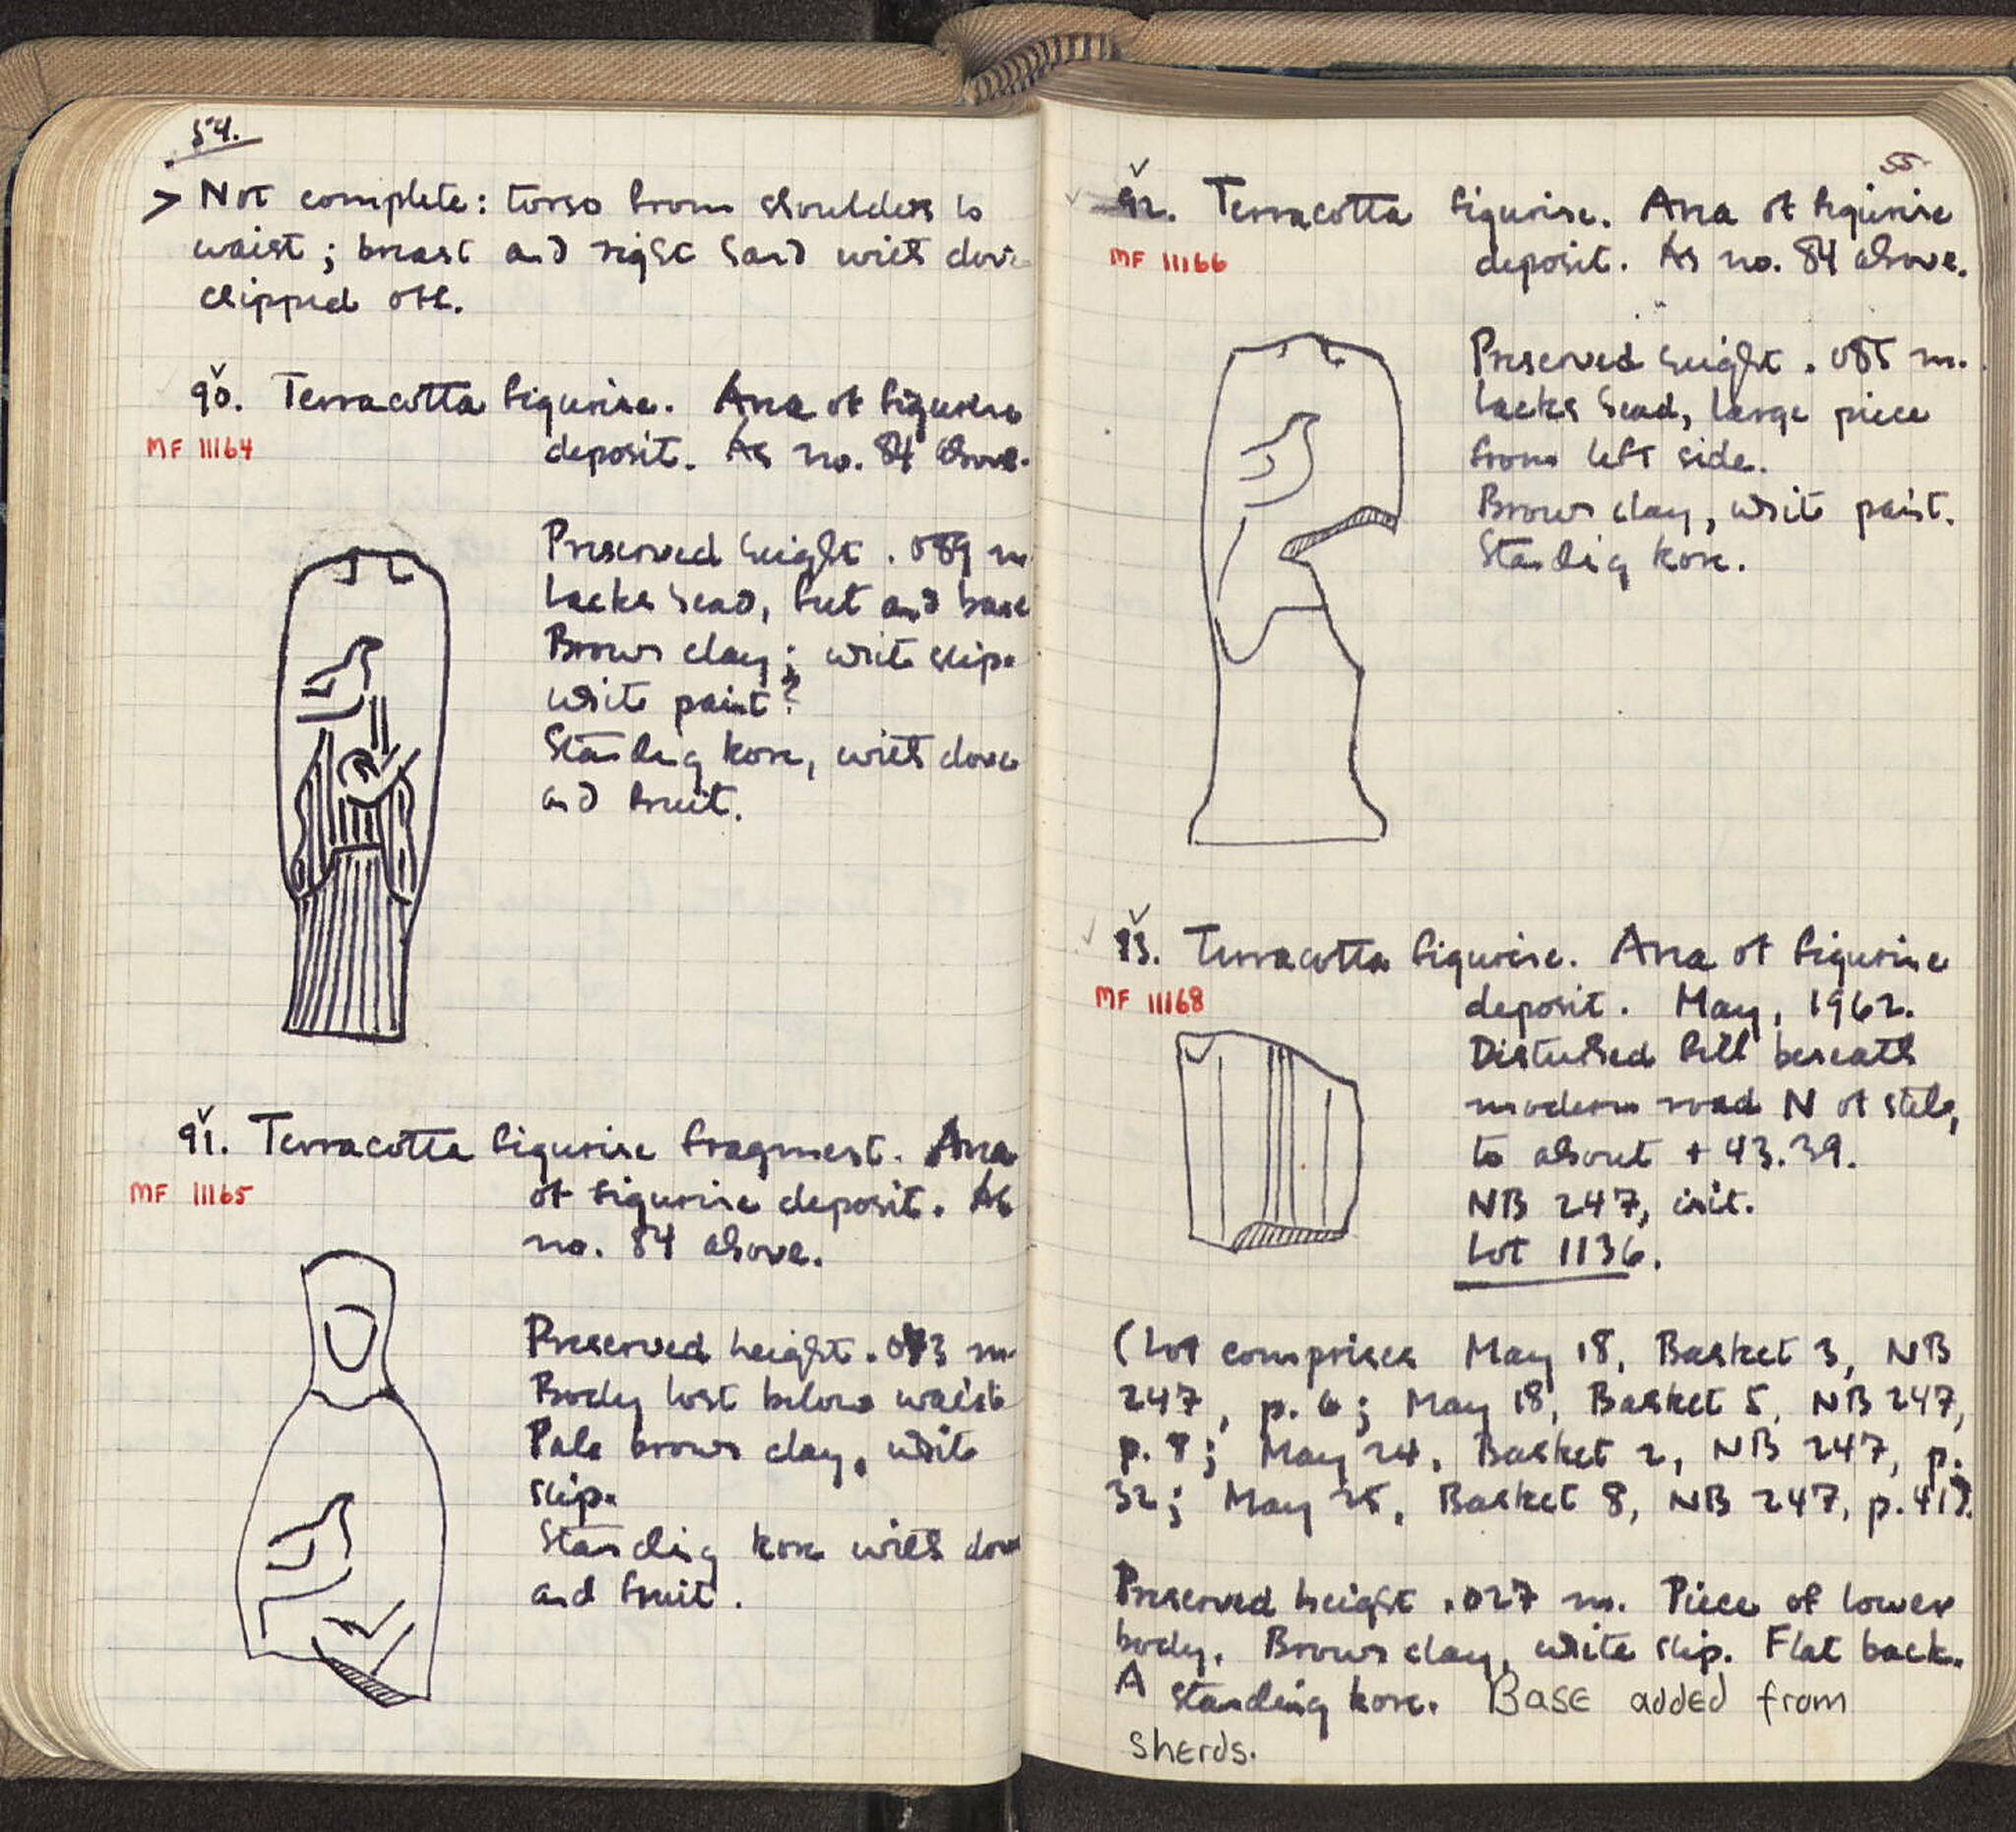 54.
> Not complete: torso from shoulders to
waist; breast and right hand with dove
chipped off.
90. Terracotta figurine. Area of figurine
MF 11164
deposit. As no. 84 above.
Preserved height .089 m
Lacks head, feet and base
Brown clay; white slip.
White paint?
Standing kore, with dove
and fruit.
91. Terracotta figurine fragment. Area
MF 11165
of figurine deposit. As
no. 84 above.
Preserved height .073 m.
Body lost below waist
Pale brown clay, white
slip.
Standing kore with dove
and fruit.
55
92. Terracotta figurine. Area of figurine
MF 11166
deposit. As no. 84 above.
Preserved height .085 m.
Lacks head, large piece
from left side.
Brown clay, white paint.
Standing kore.
93. Terracotta figurine. Area of figurine
MF 11168
deposit. May, 1962.
Disturbed fill beneath
modern road N of stele,
to about + 43.39.
NB 247, init.
Lot 1136.
(Lot comprises May 18, Basket 3, NB
247, p. 6; May 18, Basket 5, NB 247,
p. 8; May 24, Basket 2, NB 247, p.
32; May 25, Basket 8, NB 247, p. 41).
Preserved height .027 m. Piece of lower
body. Brown clay, white slip. Flat back.
A standing kore. Base added from
sherds.